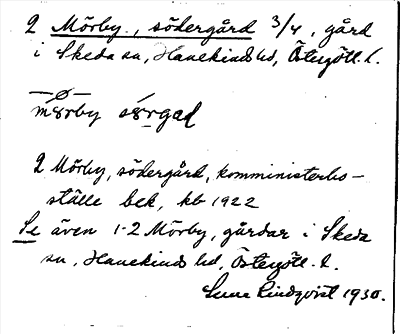 2 Mörby, södergård 3/4, gård
i Skeda sn, Hanekinds hd, Östergötl. l.
mörby sörgad
2 Mörby, södergård, komministerbo-
ställe bek, kb 1922
Se även 1-2 Mörby, gårdar i Skeda
sn, Hanekinds hd, Östergötl. l.
Sune Lindqvist 1930.